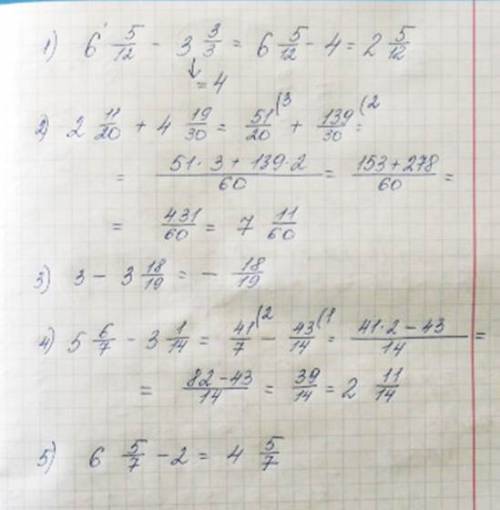 1) 6 5/12 - 3 3/3 = 6 5/12 - 4 = 2 5/12
↓
= 4
2) 2 11/20 + 4 19/30 = 51/20 (3 + 139/30 (2 =
= (51·3 + 139·2)/60 = (153+278)/60 =
= 431/60 = 7 11/60
3) 3 - 3 18/19 = - 18/19
4) 5 6/7 - 3 1/14 = 41/7 (2 - 43/14 (1 = (41·2 - 43)/14 =
= (82-43)/14 = 39/14 = 2 11/14
5) 6 5/7 - 2 = 4 5/7